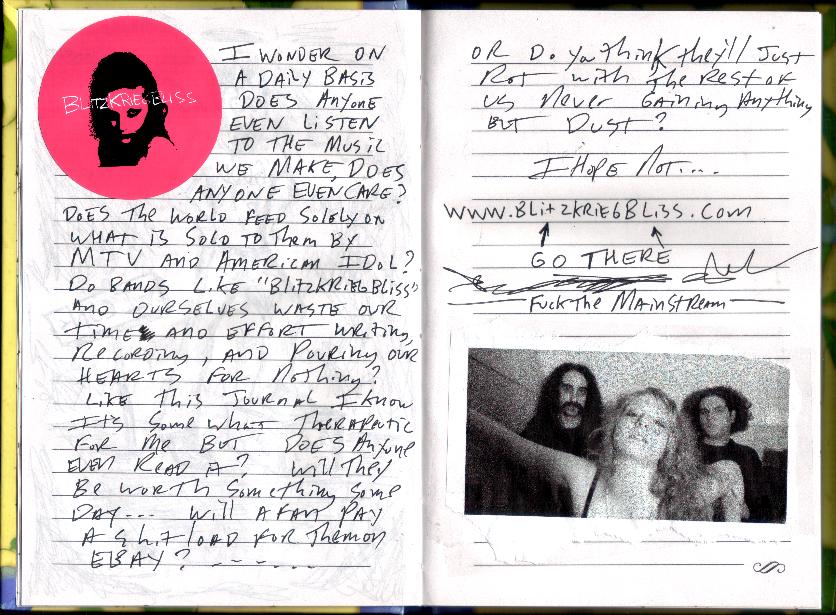 BLITZKRIEGBLISS
I WONDER ON
A DAILY BASIS
DOES ANYONE
EVEN LISTEN
TO THE MUSIC
WE MAKE, DOES
ANYONE EVEN CARE?
DOES THE WORLD FEED SOLELY ON
WHAT IS SOLD TO THEM BY
MTV AND AMERICAN IDOL?
DO BANDS LIKE "BLITZKRIEGBLISS"
AND OURSELVES WASTE OUR
TIME AND EFFORT WRITING,
RECORDING, AND POURING OUR
HEARTS FOR NOTHING?
LIKE THIS JOURNAL I KNOW
ITS SOME WHAT THERAPEUTIC
FOR ME BUT DOES ANYONE
EVEN READ IT? WILL THEY
BE WORTH SOMETHING SOME
DAY... WILL A FAN PAY
A SHIT LOAD FOR THEM ON
EBAY? -------
OR DO YOU THINK THEY'LL JUST
ROT WITH THE REST OF
US NEVER GAINING ANYTHING
BUT DUST?
I HOPE NOT....
WWW.BLITZKRIEGBLISS.COM
GO THERE
FUCK THE MAINSTREAM